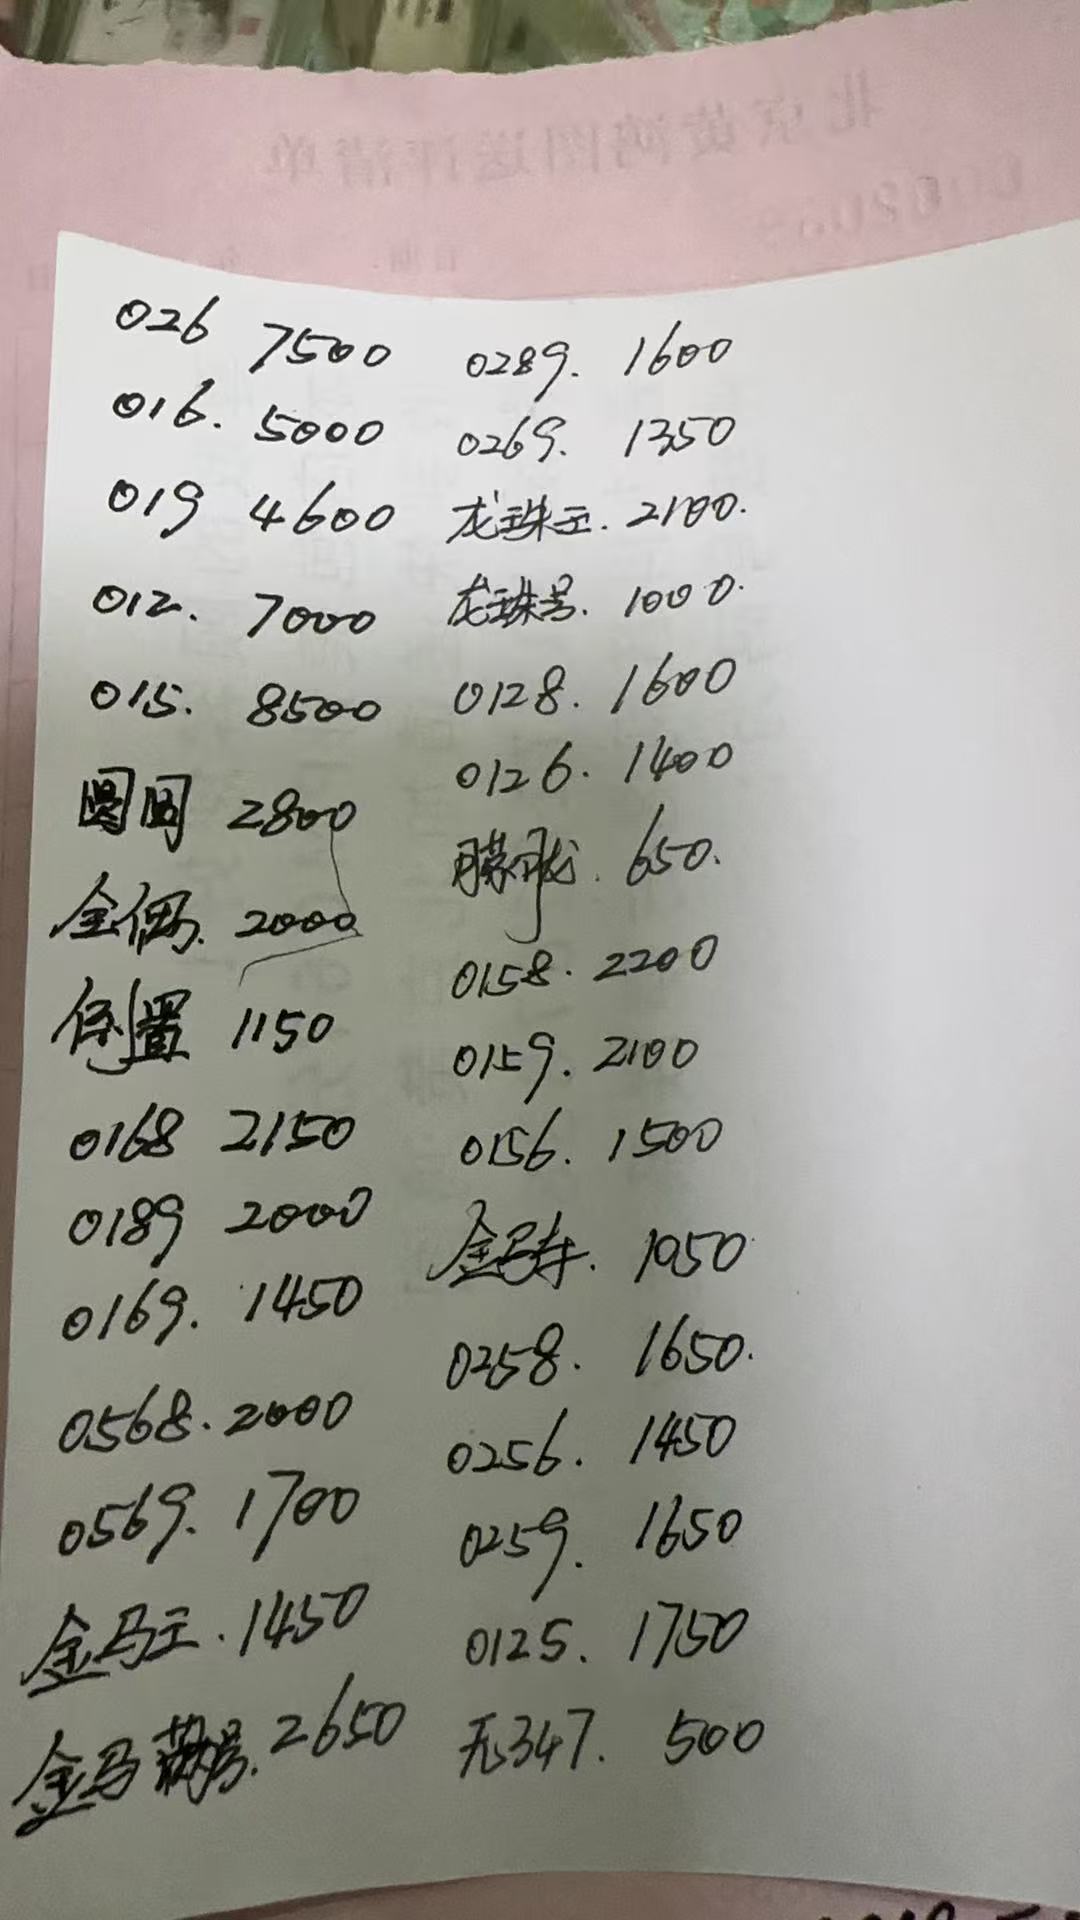 北京黄鸿图送评清单
026 7500
016. 5000
019 4600
012. 7000
015. 8500
圆圆 2800
全偶. 2000
倒置 1150
0168 2150
0189 2000
0169. 1450
0568. 2000
0569. 1700
金马王. 1450
金马 号. 2650
0289. 1600
0269. 1350
龙珠王. 2100.
龙珠号. 1000.
0128. 1600
0126. 1400
朦胧. 650.
0158. 2200
0159. 2100
0156. 1500
金马车. 1050
0258. 1650.
0256. 1450
0259. 1650
0125. 1750
无347. 500